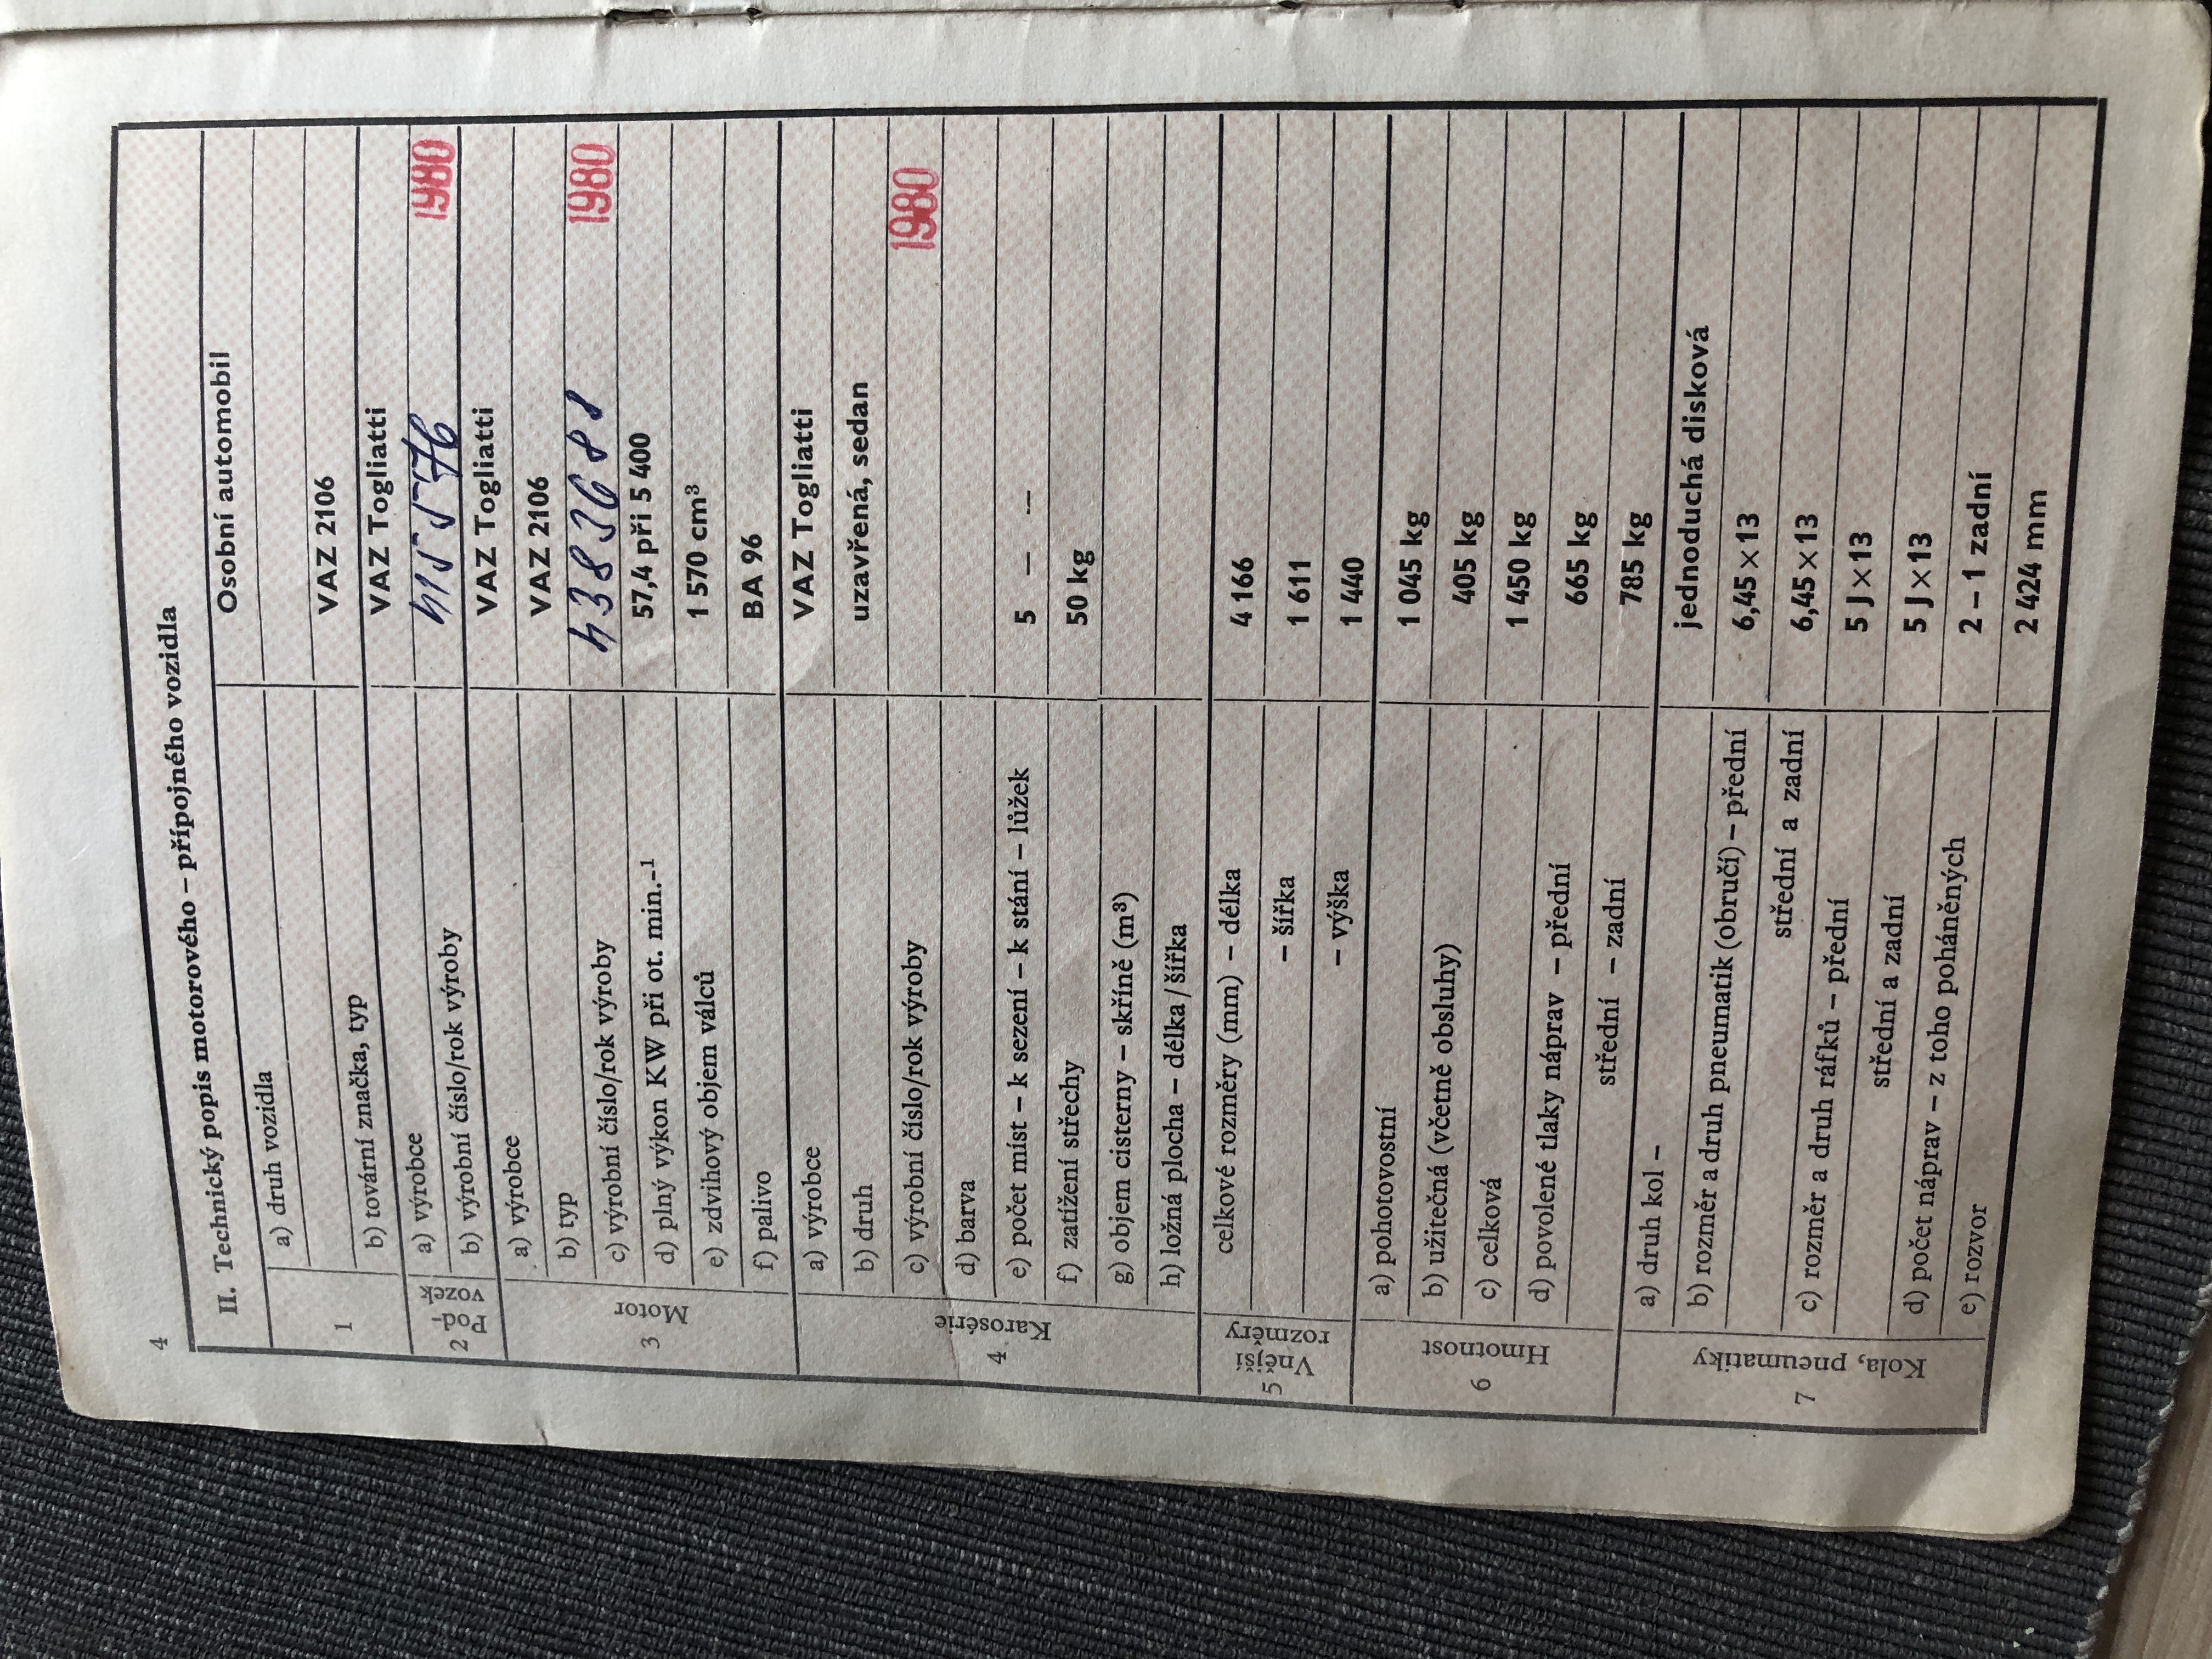 4
II. Technický popis motorového – přípojného vozidla
1
a) druh vozidla Osobní automobil
b) tovární značka, typ VAZ 2106
2 Pod-
vozek
a) výrobce VAZ Togliatti
b) výrobní číslo/rok výroby 1980
3 Motor
a) výrobce VAZ Togliatti
b) typ VAZ 2106
c) výrobní číslo/rok výroby 1980
d) plný výkon KW při ot. min.⁻¹ 57,4 při 5 400
e) zdvihový objem válců 1 570 cm³
f) palivo BA 96
4 Karosérie
a) výrobce VAZ Togliatti
b) druh uzavřená, sedan
c) výrobní číslo/rok výroby 1980
d) barva
e) počet míst – k sezení – k stání – lůžek 5 – --
f) zatížení střechy 50 kg
g) objem cisterny – skříně (m³)
h) ložná plocha – délka / šířka
5 Vnější
rozměry
celkové rozměry (mm) – délka 4 166
– šířka 1 611
– výška 1 440
6 Hmotnost
a) pohotovostní 1 045 kg
b) užitečná (včetně obsluhy) 405 kg
c) celková 1 450 kg
d) povolené tlaky náprav – přední 665 kg
střední – zadní 785 kg
7 Kola, pneumatiky
a) druh kol – jednoduchá disková
b) rozměr a druh pneumatik (obručí) – přední 6,45 × 13
střední a zadní 6,45 × 13
c) rozměr a druh ráfků – přední 5 J × 13
střední a zadní 5 J × 13
d) počet náprav – z toho poháněných 2 – 1 zadní
e) rozvor 2 424 mm